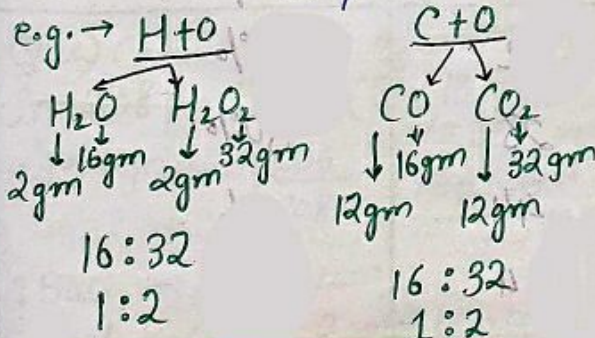 e.g. → H+O
H₂O H₂O₂
2gm 16gm 2gm 32gm
16 : 32
1 : 2
C+O
CO CO₂
12gm 16gm 12gm 32gm
16 : 32
1 : 2